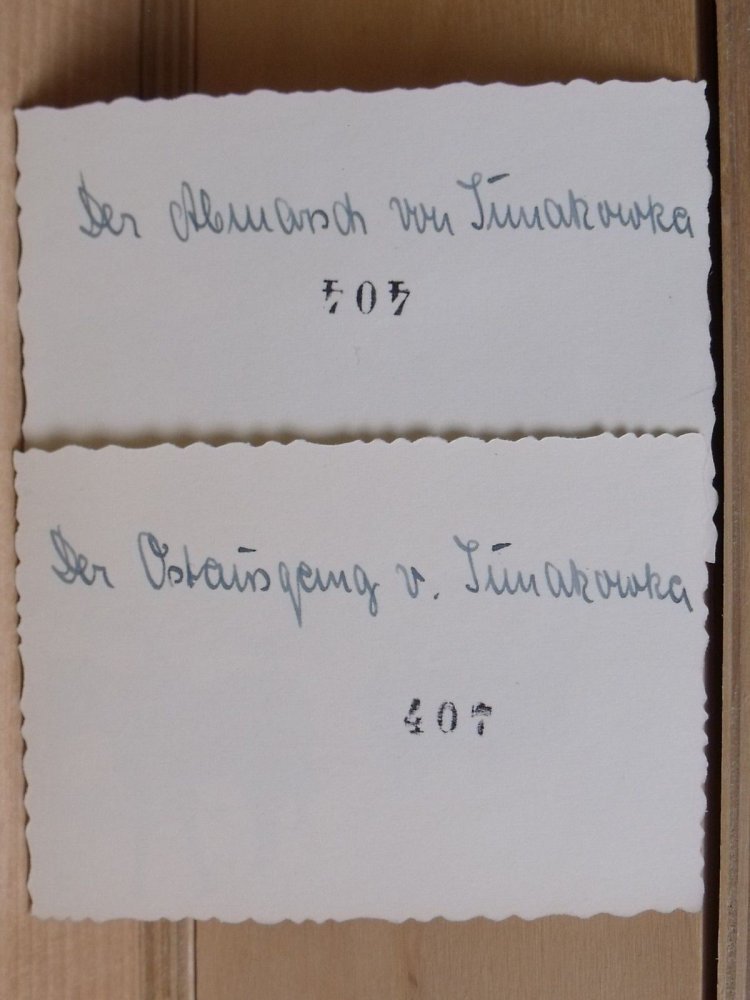 Der Abmarsch von Junakowka
404
Der Ostausgang v. Junakowka
407